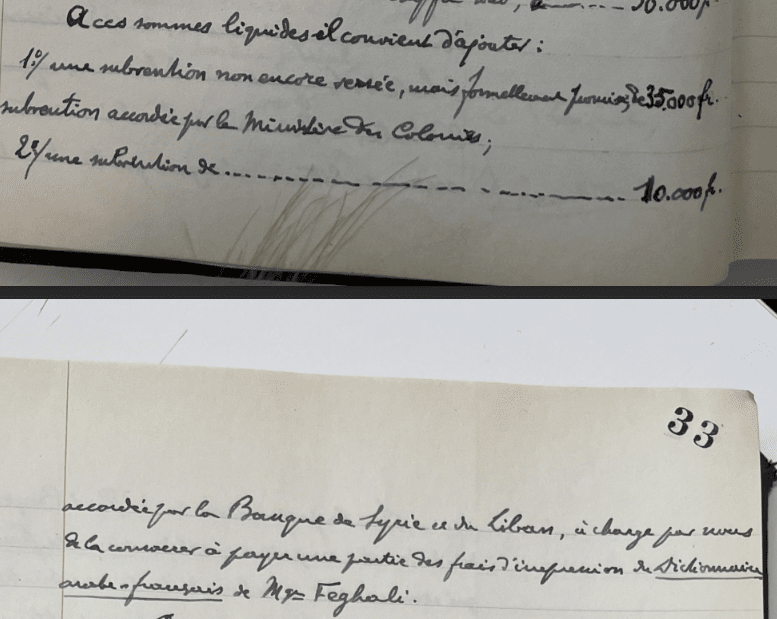 10.000fr.
A ces sommes liquides il convient d'ajouter :
1º/ une subvention non encore versée, mais formellement promise, de 35.000 fr.
subvention accordée par le Ministère des Colonies ;
2º/ une subvention de .................... 10.000 fr.
33
accordée par la Banque de Syrie et du Liban, à charge par nous
de la consacrer à payer une partie des frais d'impression du Dictionnaire
arabe-français de Mgr Feghali.